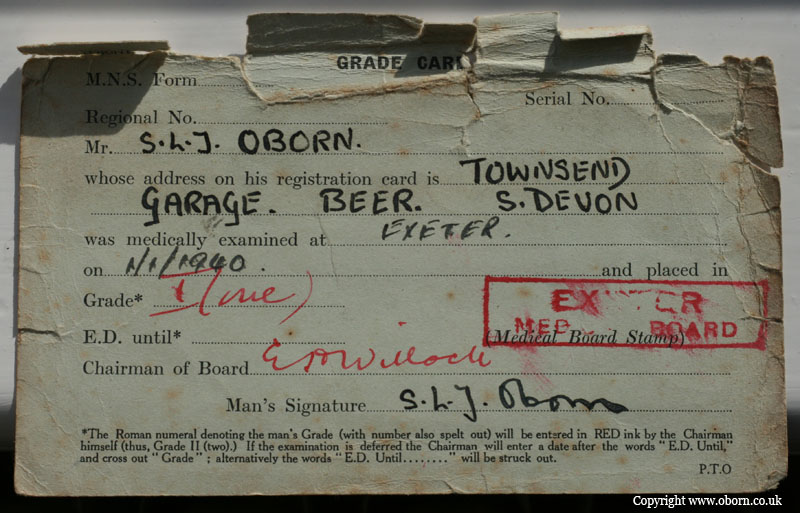 GRADE CARD
M.N.S. Form
Serial No.
Regional No.
Mr. S.L.J. OBORN.
whose address on his registration card is TOWNSEND
GARAGE. BEER. S. DEVON
was medically examined at EXETER.
on 1/1/1940. and placed in
Grade* I (one)
EXETER
MED BOARD
E.D. until* (Medical Board Stamp)
Chairman of Board
Man's Signature S.L.J. Oborn
*The Roman numeral denoting the man's Grade (with number also spelt out) will be entered in RED ink by the Chairman
himself (thus, Grade II (two).) If the examination is deferred the Chairman will enter a date after the words "E.D. Until,"
and cross out "Grade"; alternatively the words "E.D. Until........" will be struck out.
P.T.O
Copyright www.oborn.co.uk